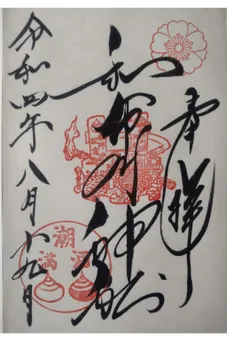 奉拝
和布刈神社
令和四年八月九日
潮
満